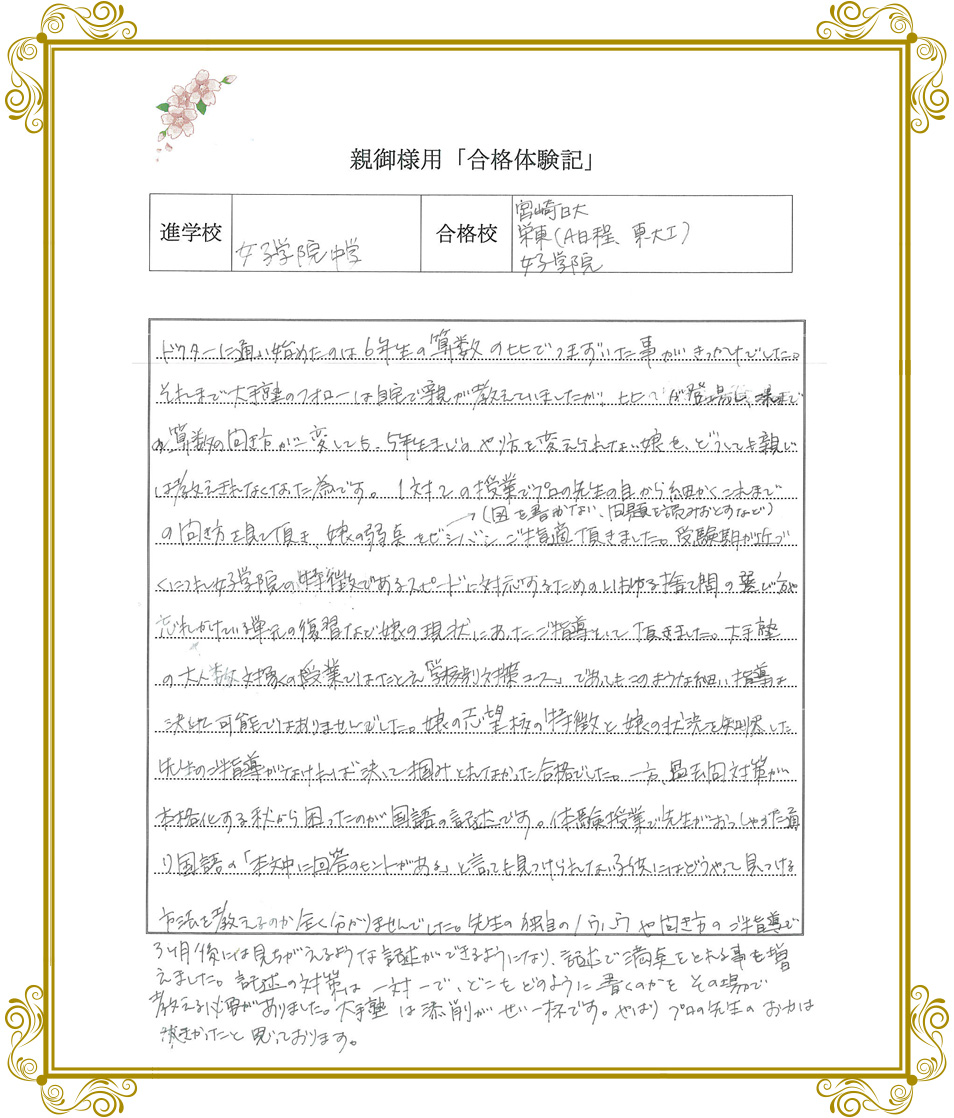 親御様用「合格体験記」
進学校
女子学院中学
合格校
宮崎日大
栄東(A日程、東大I)
女子学院
ドクターに通い始めたのは6年生の算数の比でつまずいた事がきっかけでした。
それまで大手塾のフォローは自宅で親が教えていましたが、比が登場し、漸まで
の算数の向き方が一変しても、5年生までの やり方を変えられない娘を、どうしても親じ
は教えきれなくなった為です。1対2の授業でプロの先生の目から細かくこれまで
→(図を書かない、問題を読みおとすなど)
の向き方を見て頂き、娘の弱点をビシバシご指摘頂きました。受験期が近づ
くにつれ女子学院の特徴であるスピードに対応するためのいわゆる捨て問の選び方や
忘れかけている単元の復習など娘の現状にあったご指導をして頂きました。大手塾
の大人数対象の授業ではたとえ「学校別対策コース」であってもこのような細い指導は
決して可能ではありませんでした。娘の志望校の特徴と娘の状況を知り尽した
先生のご指導がなければ決して掴みとれなかった合格でした。一方、過去問対策が
本格化する秋から困ったのが国語の記述です。体験授業で先生がおっしゃった通
り国語の「本文中に回答のヒントがある」と言っても見つけられない子供にはどうやって見つける
方法を教えるのか全く分かりませんでした。先生の独自のノウハウや向き方のご指導で
3ヶ月後には見ちがえるような記述ができるようになり、記述で満点をとれる事も増
えました。記述の対策は一対一で、どこをどのように書くのかをその場で
教える必要がありました。大手塾は添削がせい一杯です。やはりプロの先生のお力は
大きかったと思っております。